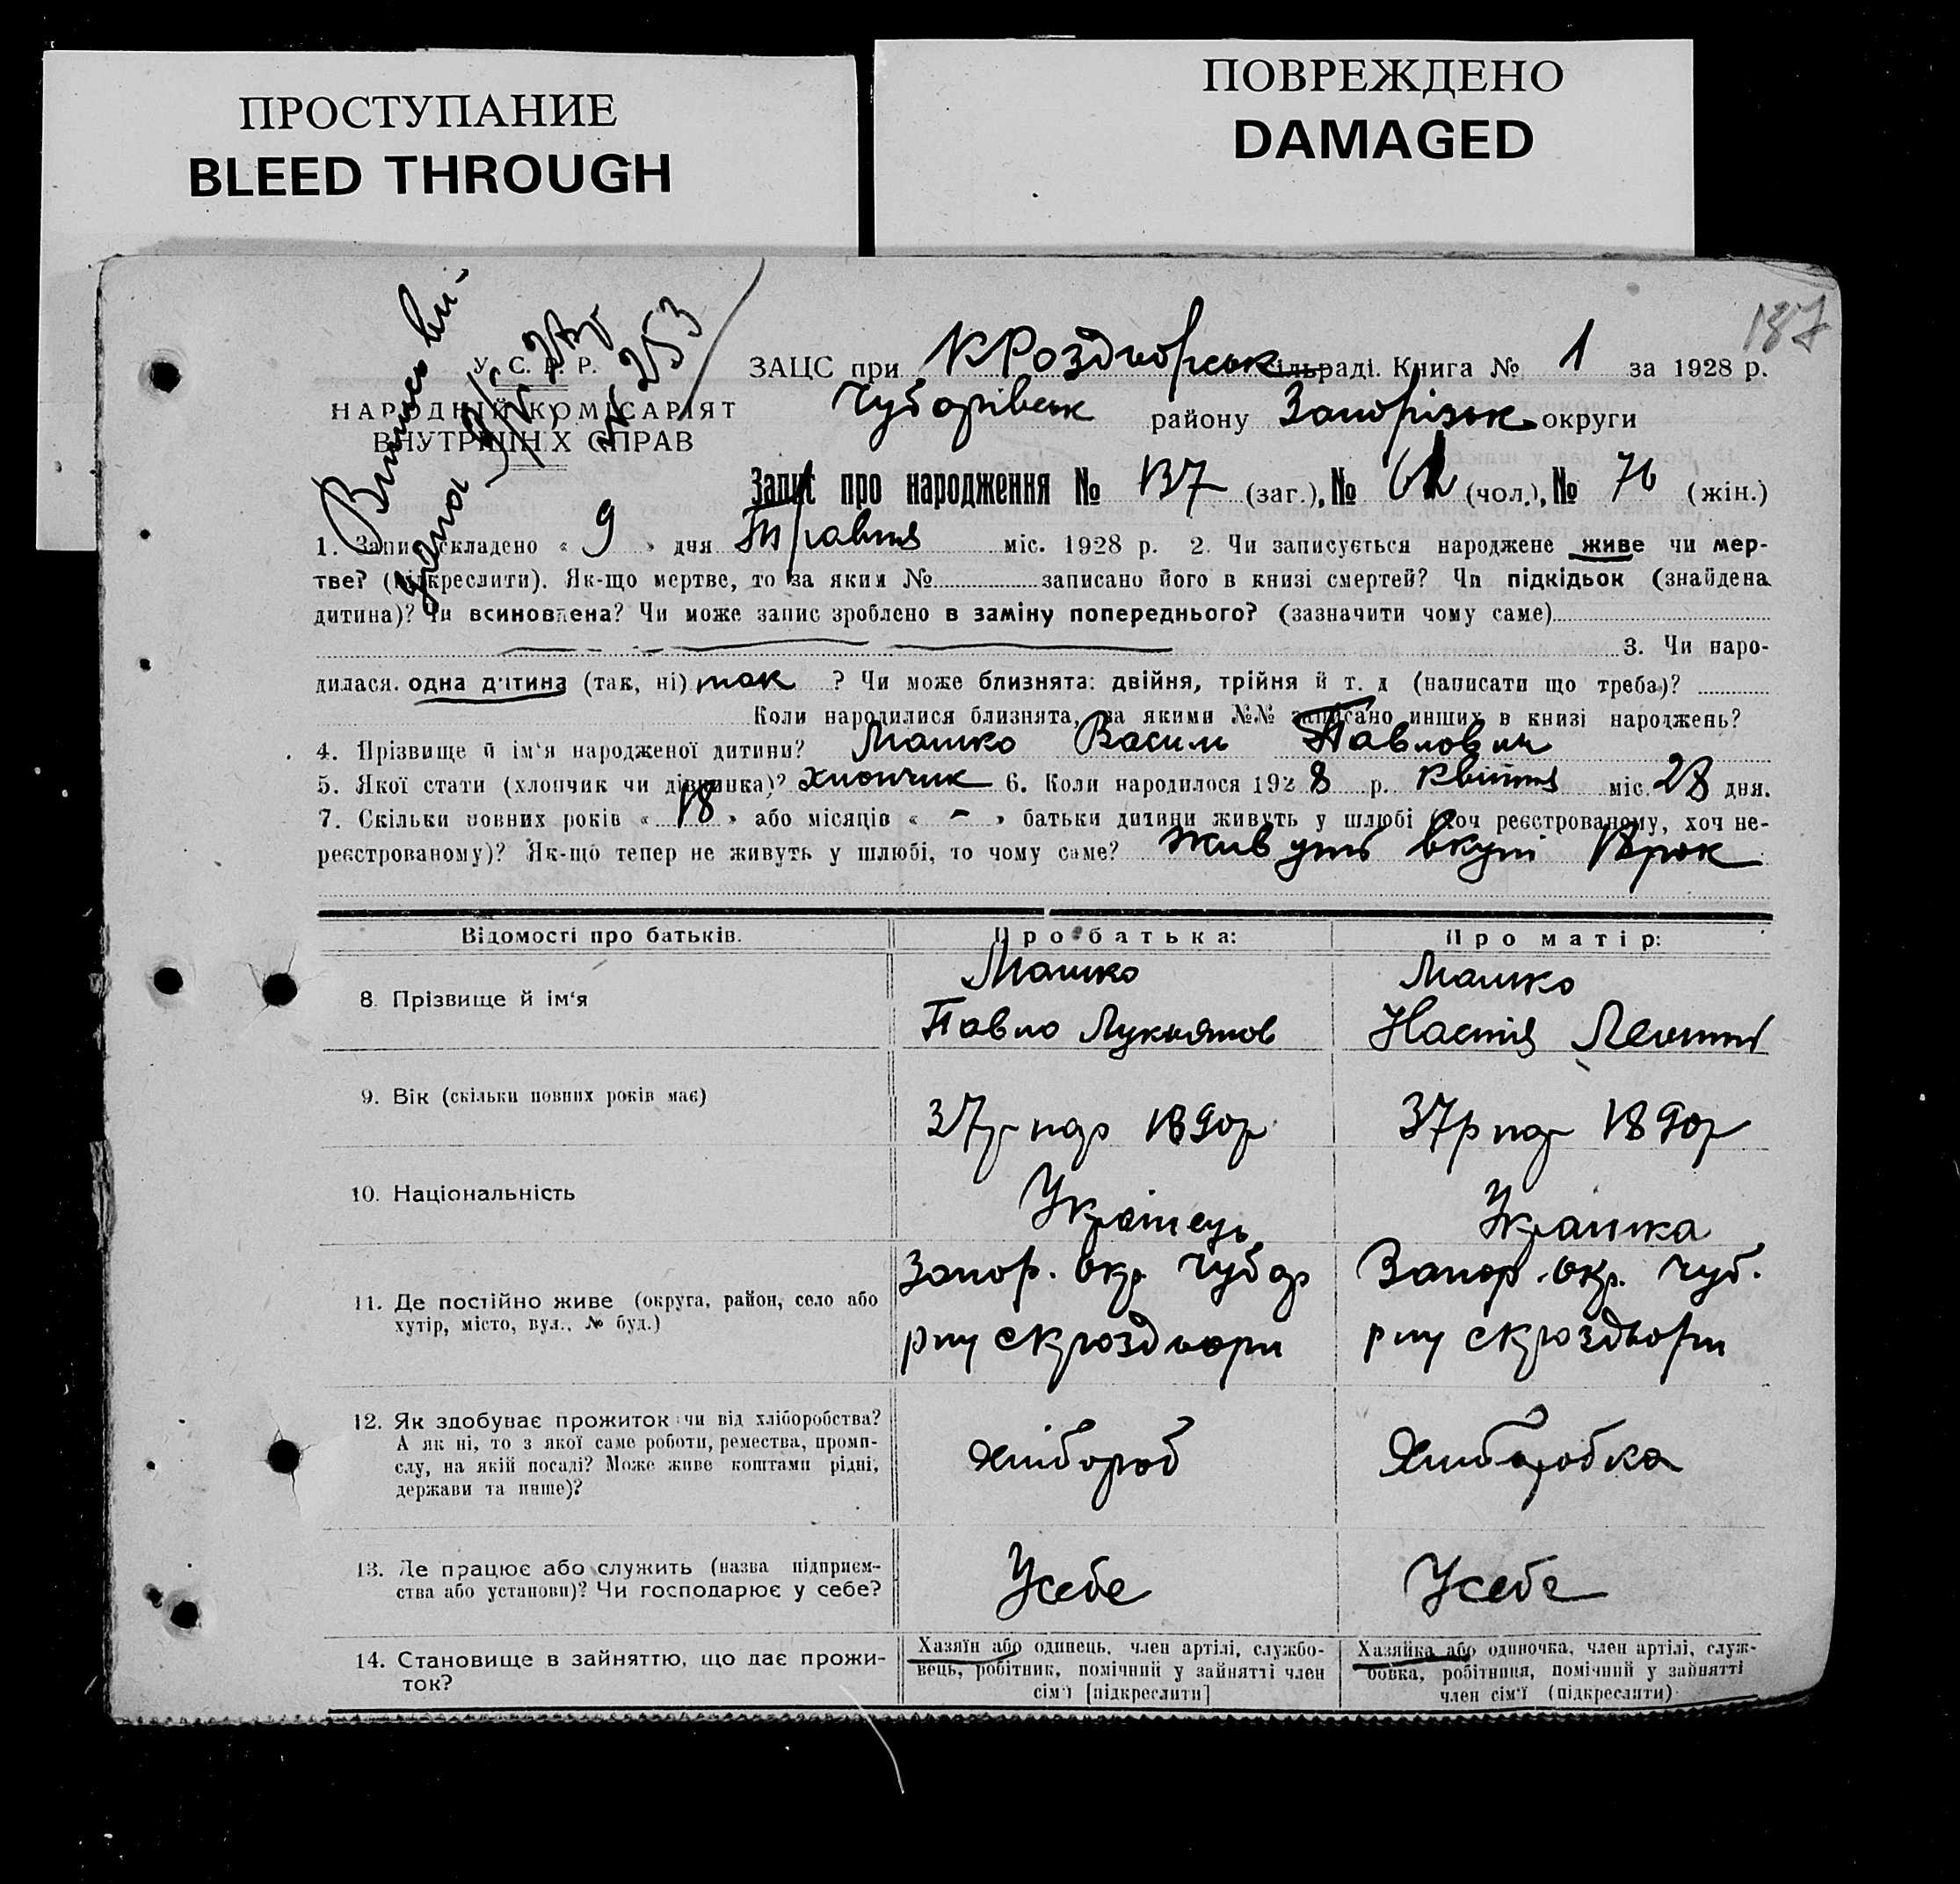 ПРОСТУПАНИЕ
BLEED THROUGH
ПОВРЕЖДЕНО
DAMAGED
187
У. С. Р. Р.
НАРОДНІЙ КОМІСАРІЯТ
ВНУТРІШНІХ СПРАВ
Випись ви-
дана
№ 253
ЗАЦС при КРоздорськ сільраді. Книга № 1 за 1928 р.
Чубарівськ району Запорізьк округи
Запис про народження № 137 (заг.), № 61 (чол.), № 76 (жін.)
1. Запис складено « 9 » дня Травня міс. 1928 р. 2. Чи записується народжене живе чи мер-
тве? (підкреслити). Як-що мертве, то за яким № записано його в книзі смертей? Чи підкідьок (знайдена
дитина)? Чи всиновлена? Чи може запис зроблено в заміну попереднього? (зазначити чому саме)
3. Чи наро-
дилася одна дитина (так, ні) так ? Чи може близнята: двійня, трійня й т. д (написати що треба)?
Коли народилися близнята, за якими №№ записано инших в книзі народжень?
4. Прізвище й ім'я народженої дитини? Машко Василь Павлович
5. Якої стати (хлопчик чи дівчинка)? хлопчик 6. Коли народилося 1928 р. квітня міс. 28 дня.
7. Скільки повних років « 18 » або місяців « - » батьки дитини живуть у шлюбі (хоч реєстрованому, хоч не-
реєстрованому)? Як-що тепер не живуть у шлюбі, то чому саме? живуть вкупі 18 рок
Відомості про батьків. Про батька: Про матір:
8. Прізвище й ім'я
Машко
Павло Лукьянов
Машко
Настя Леонт
9. Вік (скільки повних років має)
37р нар 1890р
37р нар 1890р
10. Національність
Українець
Українка
11. Де постійно живе (округа, район, село або
хутір, місто, вул., № буд.)
Запор. окр. Чубар
рну скроздори
Запор. окр. Чуб.
рну скроздори
12. Як здобуває прожиток чи від хліборобства?
А як ні, то з якої саме роботи, ремества, промп-
слу, на якій посаді? Може живе коштами рідні,
держави та инше)?
Хлібороб
Хліборобка
13. Де працює або служить (назва підприєм-
ства або установи)? Чи господарює у себе?
Усебе
Усебе
14. Становище в зайняттю, що дає прожи-
ток?
Хазяїн або одинець, член артілі, службо-
вець, робітник, помічний у зайнятті член
сім'ї [підкреслити]
Хазяйка або одиночка, член артілі, служ-
бовка, робітниця, помічний у зайнятті
член сім'ї (підкреслити)